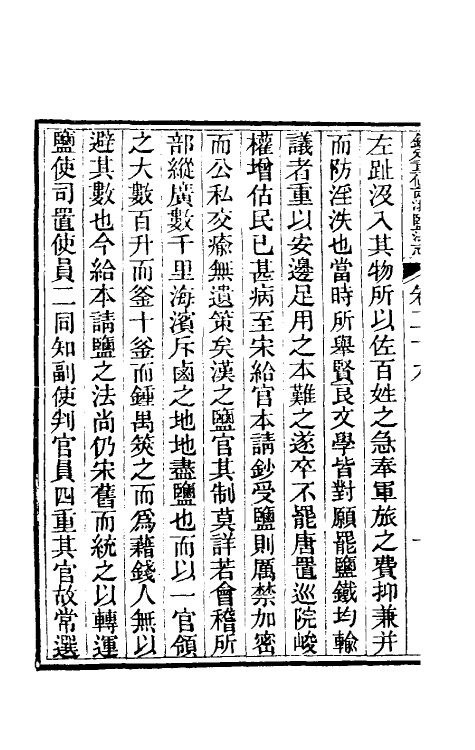 左趾沒入其物所以佐百姓之急奉軍旅之費抑兼并
而防淫泆也當時所舉賢良文學皆對願罷鹽鐵均輸
議者重以安邊足用之本難之遂卒不罷唐置巡院峻
權增估民已甚病至宋給官本請鈔受鹽則厲禁加密
而公私交瘉無遺策矣漢之鹽官其制莫詳若會稽所
部縱廣數千里海濱斥鹵之地地盡鹽也而以一官領
之大數百升而釜十釜而鍾禺筴之而爲藉錢人無以
避其數也今給本請鹽之法尚仍宋舊而統之以轉運
鹽使司置使員二同知副使判官員四重其官故常選